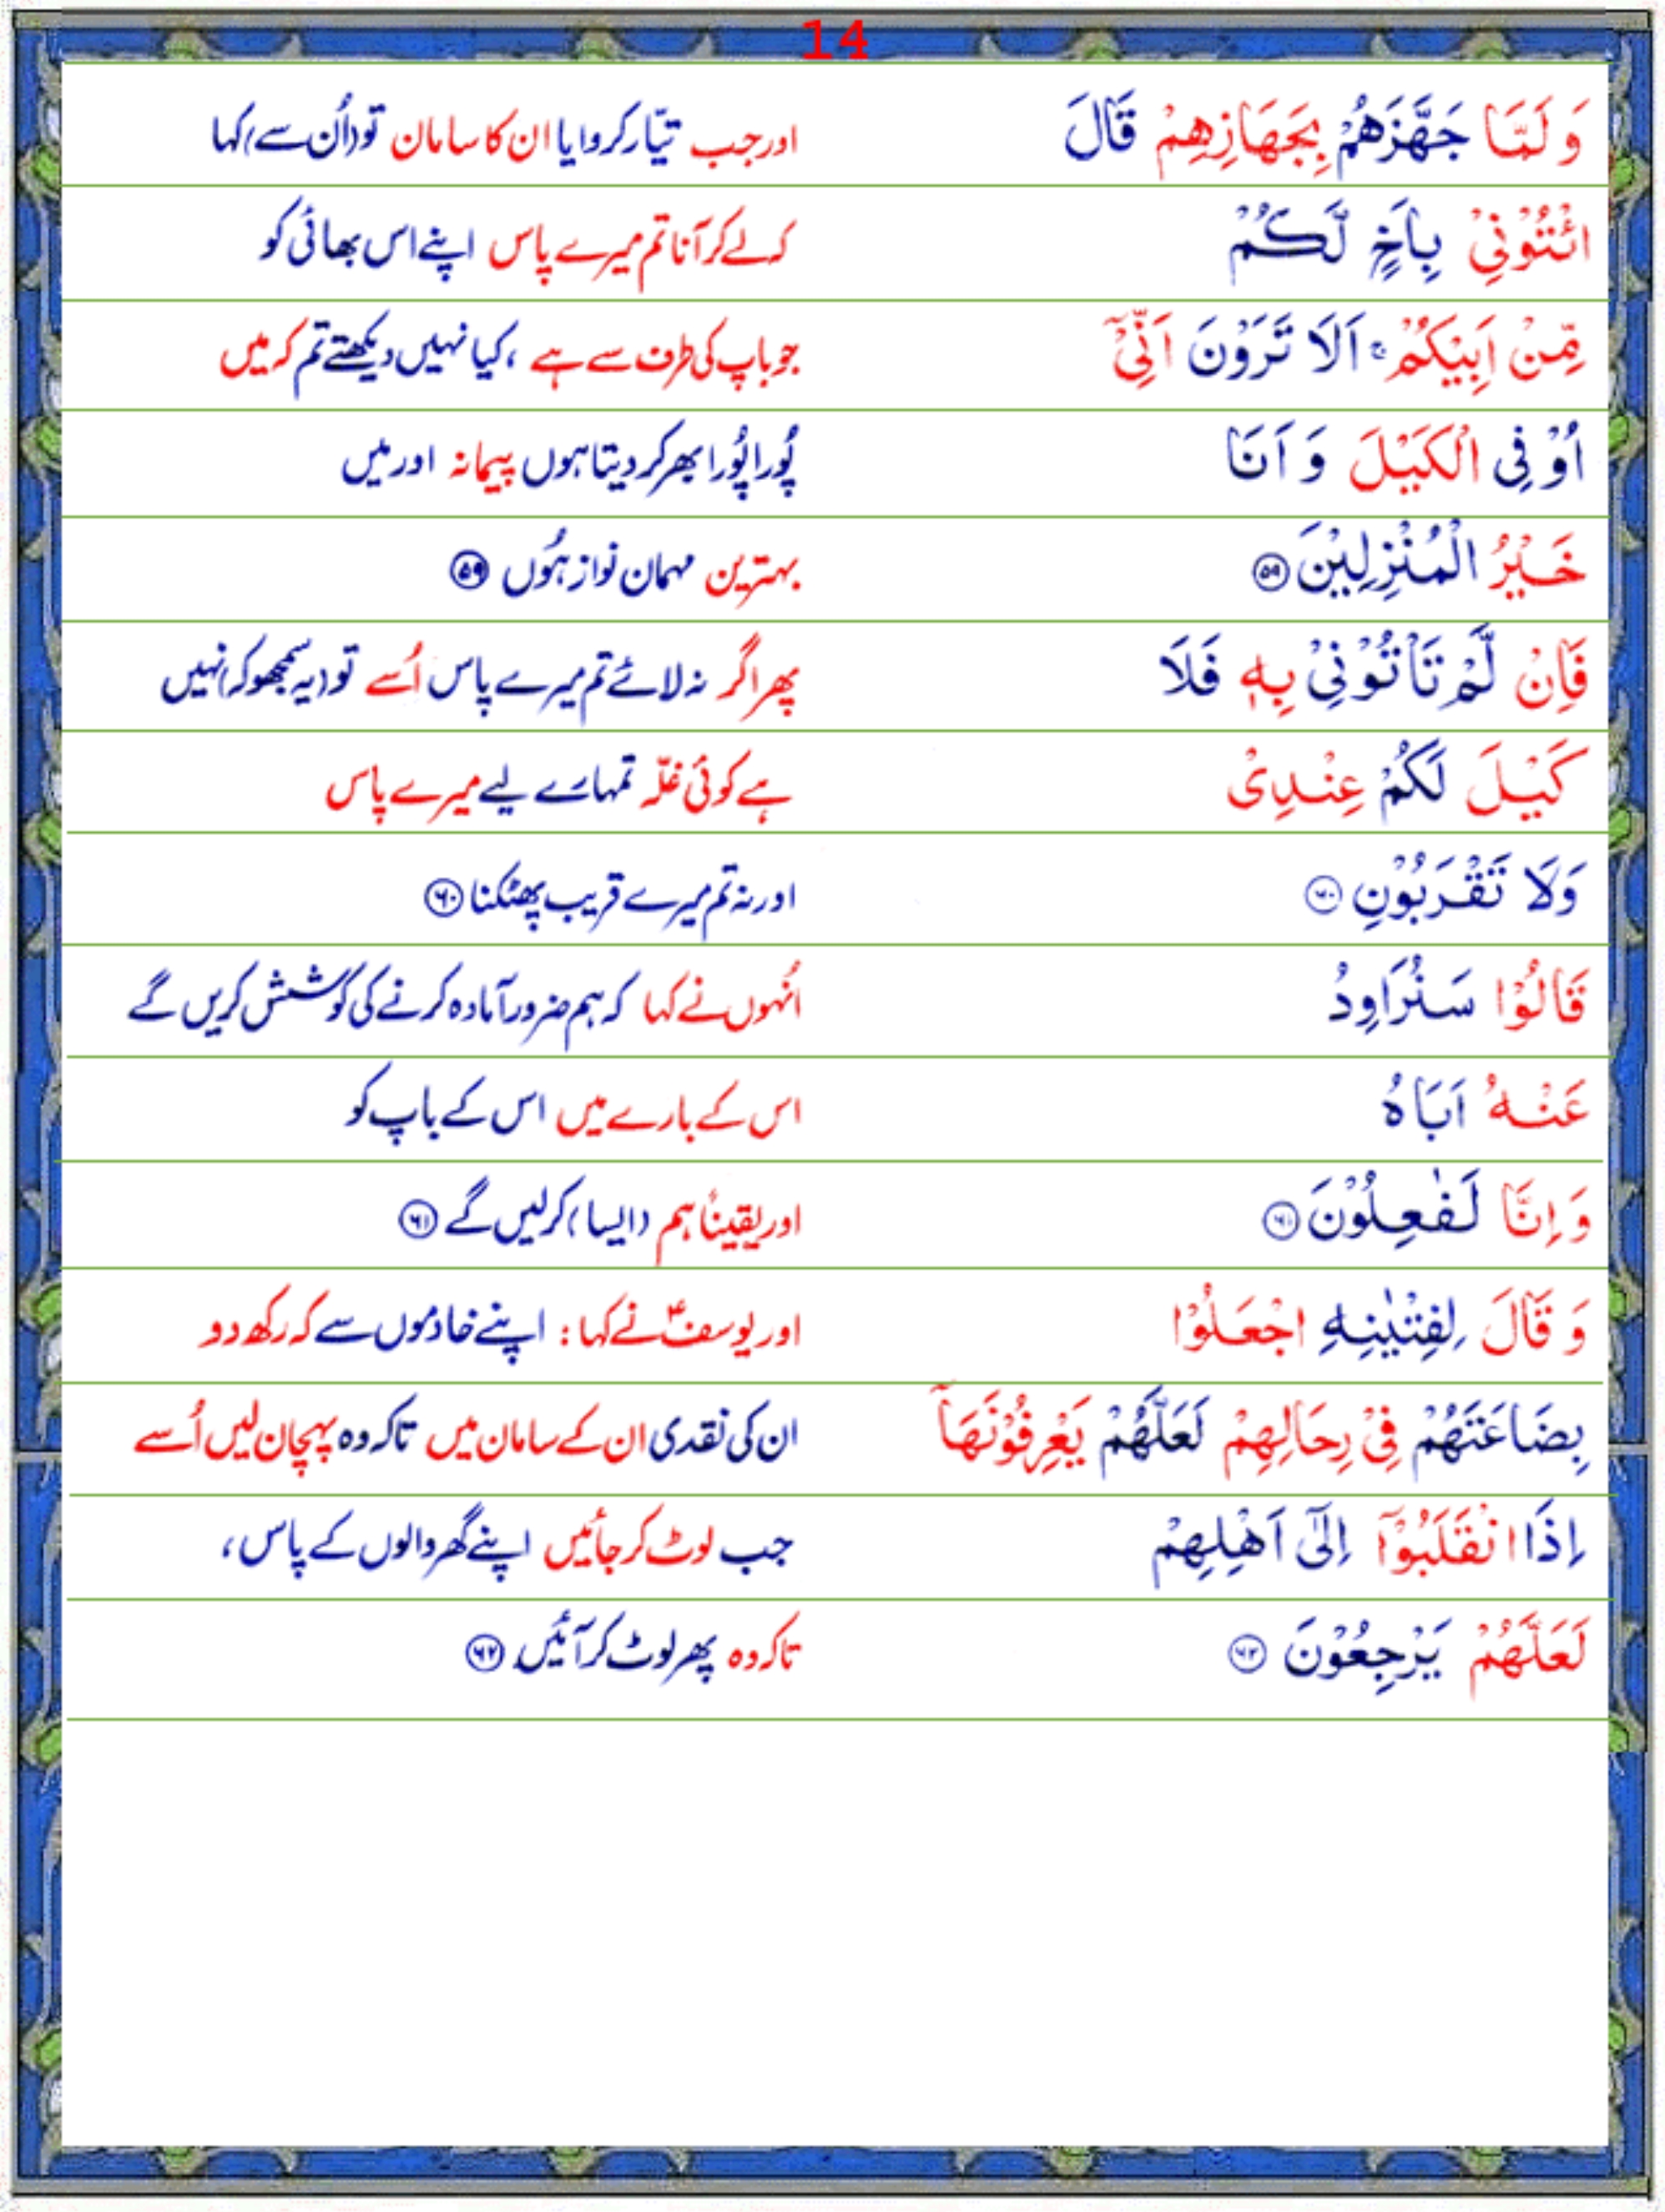 14
وَ لَمَّا جَهَّزَهُمْ بِجَهَازِهِمْ قَالَ اور جب تیّار کروا یا ان کا سامان تو(اُن سے)کہا
ائْتُوْنِیْ بِاَخٍ لَّكُمْ کہ لے کر آنا تم میرے پاس اپنے اس بھائی کو
مِّنْ اَبِیْكُمْ ۚ اَلَا تَرَوْنَ اَنِّیْۤ جو باپ کی طرف سے ہے ،کیا نہیں دیکھتے تم کہ میں
اُوْفِی الْكَیْلَ وَ اَنَا پُورا پُورا بھر کر دیتا ہوں پیمانہ اور میں
خَیْرُ الْمُنْزِلِیْنَ ۵۹ بہترین مہمان نواز ہُوں ۵۹
فَاِنْ لَّمْ تَاْتُوْنِیْ بِهٖ فَلَا پھر اگر نہ لائے تم میرے پاس اُسے تو(یہ سمجھو کہ)نہیں
كَیْلَ لَكُمْ عِنْدِیْ ہے کوئی غلّہ تمہارے لیے میرے پاس
وَلَا تَقْرَبُوْنِ ۶۰ اور نہ تم میرے قریب پھٹکنا ۶۰
قَالُوْا سَنُرَاوِدُ اُنہوں نے کہا کہ ہم ضرور آمادہ کرنے کی کوشش کریں گے
عَنْهُ اَبَاهُ اس کے بارے میں اس کے باپ کو
وَ اِنَّا لَفٰعِلُوْنَ ۶۱ اور یقیناً ہم (ایسا)کر لیں گے ۶۱
وَ قَالَ لِفِتْیٰنِهِ اجْعَلُوْا اور یوسفؑ نے کہا : اپنے خادموں سے کہ رکھ دو
بِضَاعَتَهُمْ فِیْ رِحَالِهِمْ لَعَلَّهُمْ یَعْرِفُوْنَهَاۤ ان کی نقدی ان کے سامان میں تاکہ وہ پہچان لیں اُسے
اِذَا انْقَلَبُوْۤا اِلٰۤی اَهْلِهِمْ جب لوٹ کر جائیں اپنے گھر والوں کے پاس ،
لَعَلَّهُمْ یَرْجِعُوْنَ ۶۲ تاکہ وہ پھر لوٹ کر آئیں ۶۲